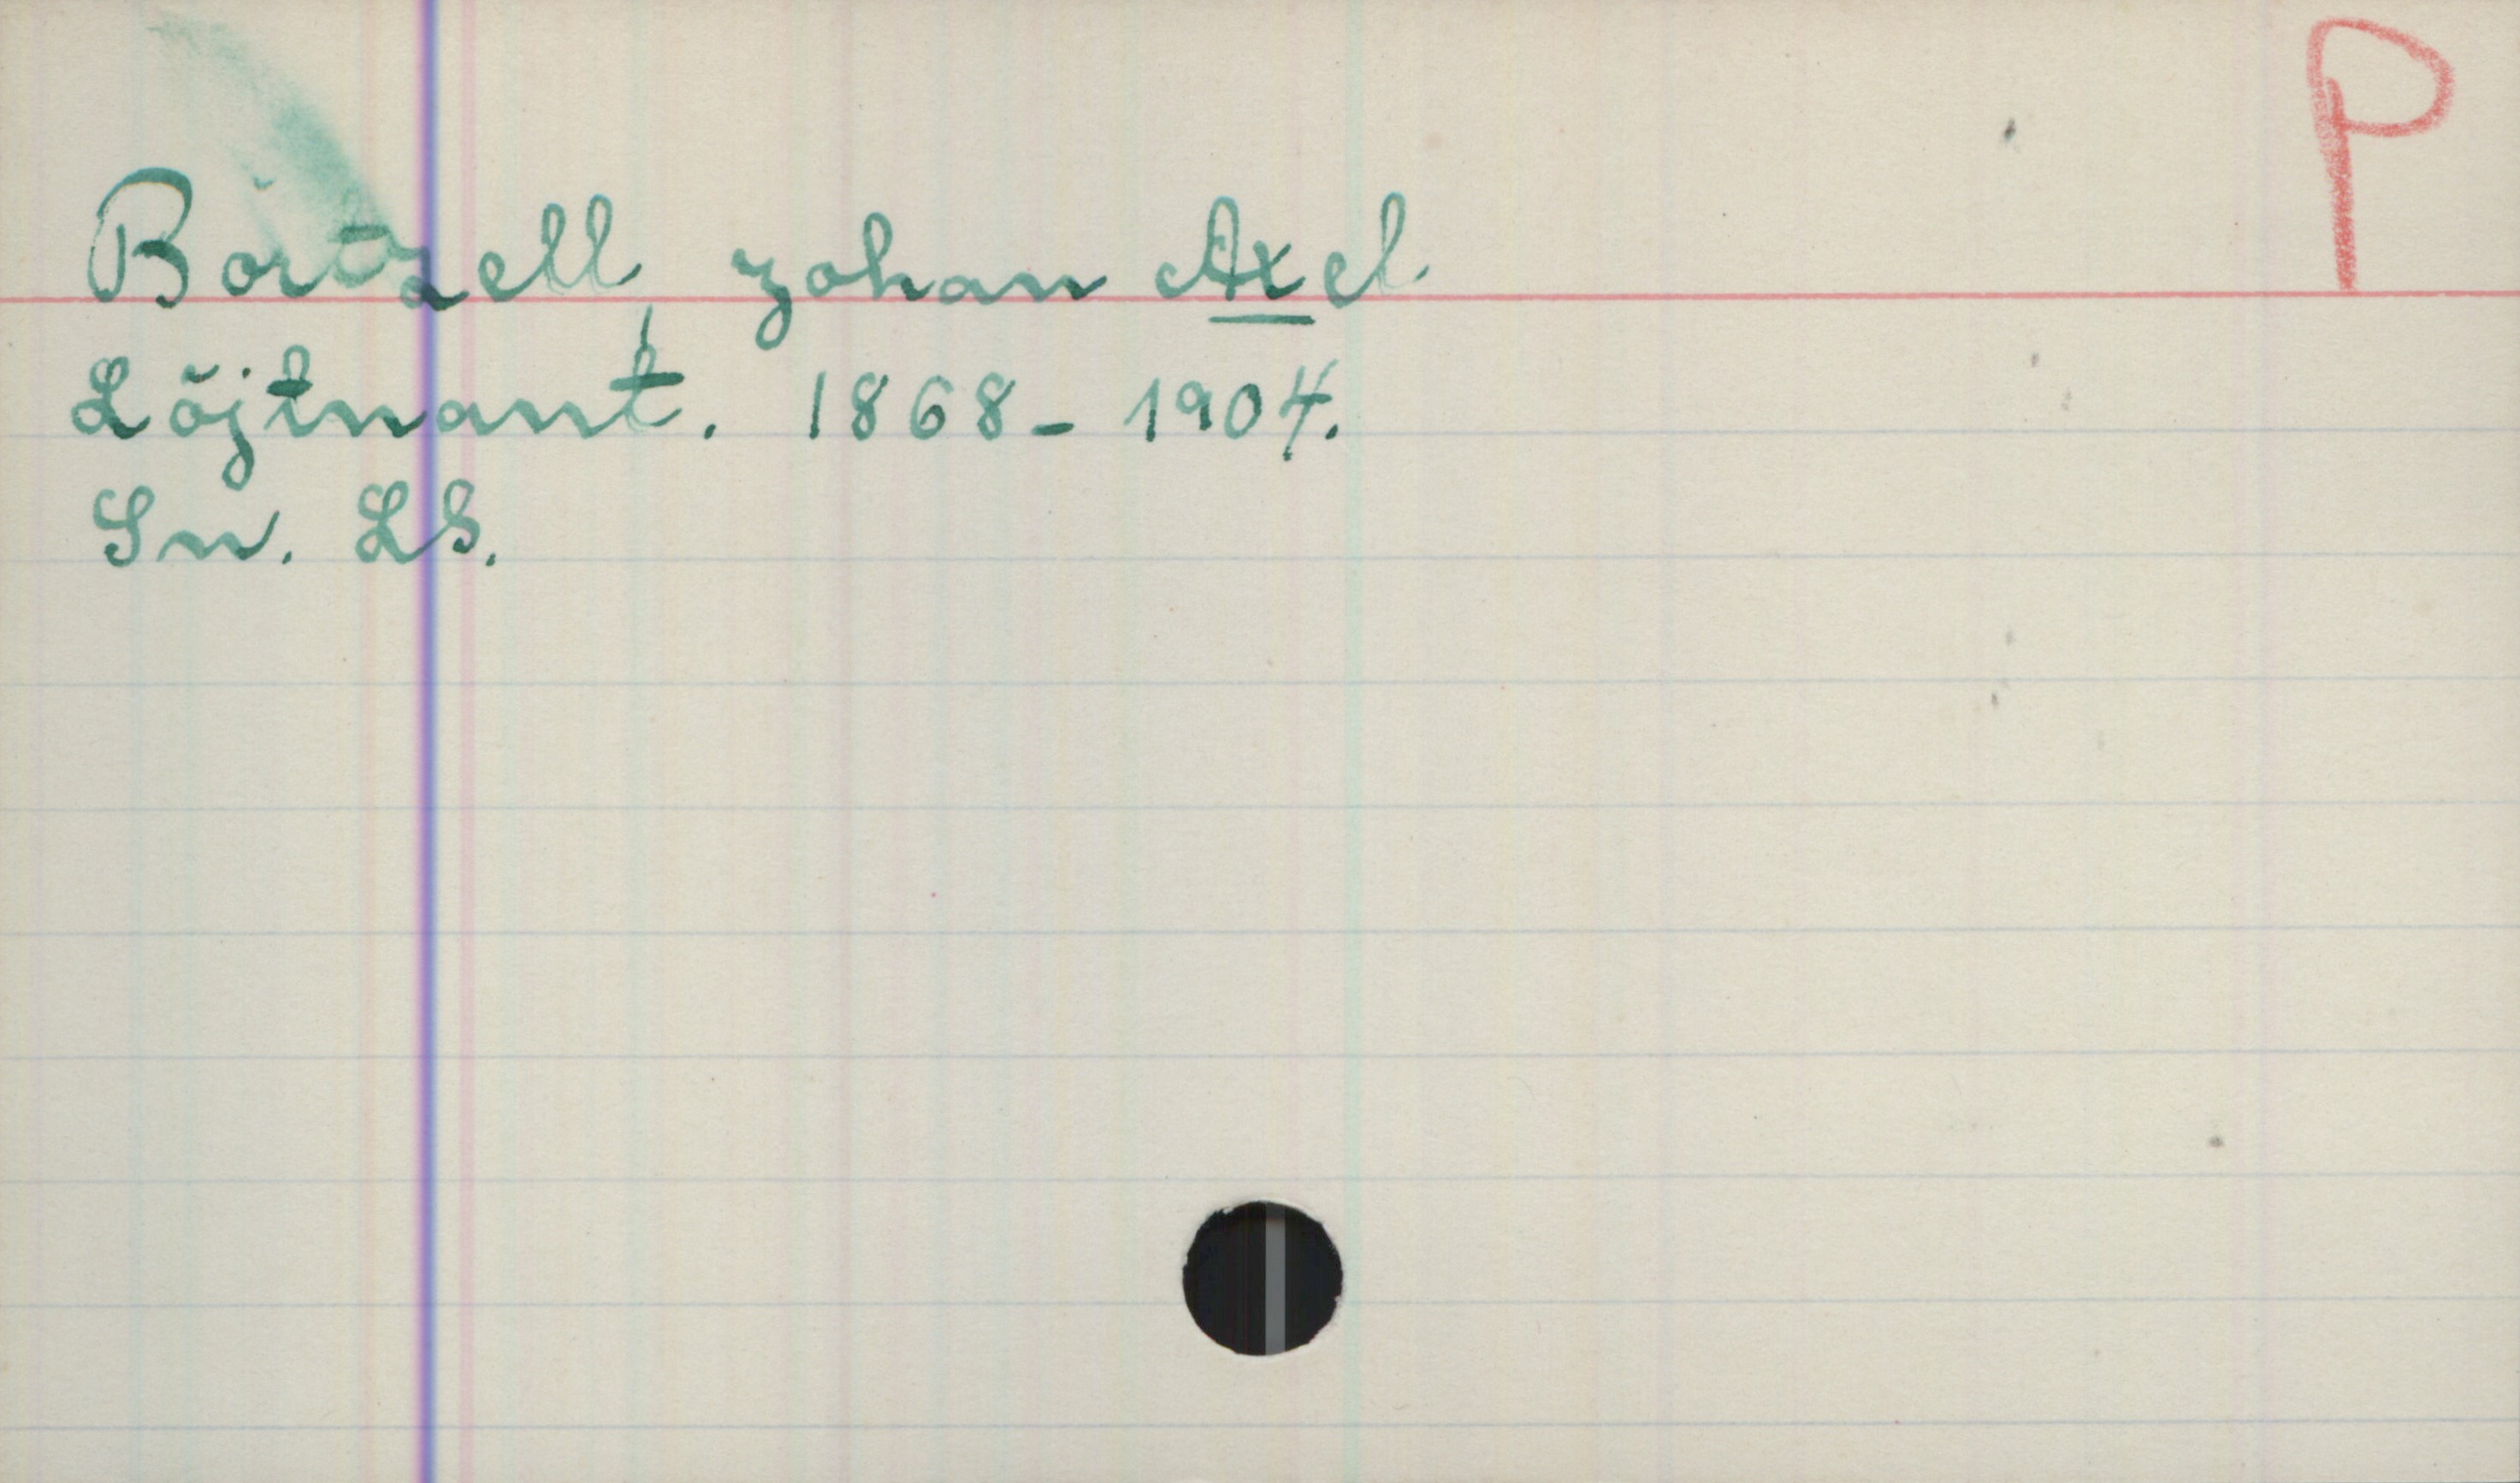 P
Börtzell, Johan Axel
Löjtnant. 1868-1904.
Sn. LS.